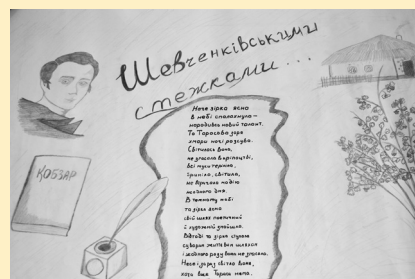 Шевченківськими
стежками...
КОБЗАР
Наче зірка ясна
в небі спалахнула —
народивсь новий талант.
Та Тарасова зоря
хмари ночі розсува.
Світилась вона,
не згасала в кріпацтві,
всі муки терпіла,
зріла, світила,
не втрачала надію
жодного дня.
В темному небі
та зірка ясна
свій шлях поетичний
й художній знайшла.
Відтоді та зірка ступала
сувора життєва шляхом
і жодного разу вона не згасала.
Наче зоря світла вона,
хоча вже Тараса нема,